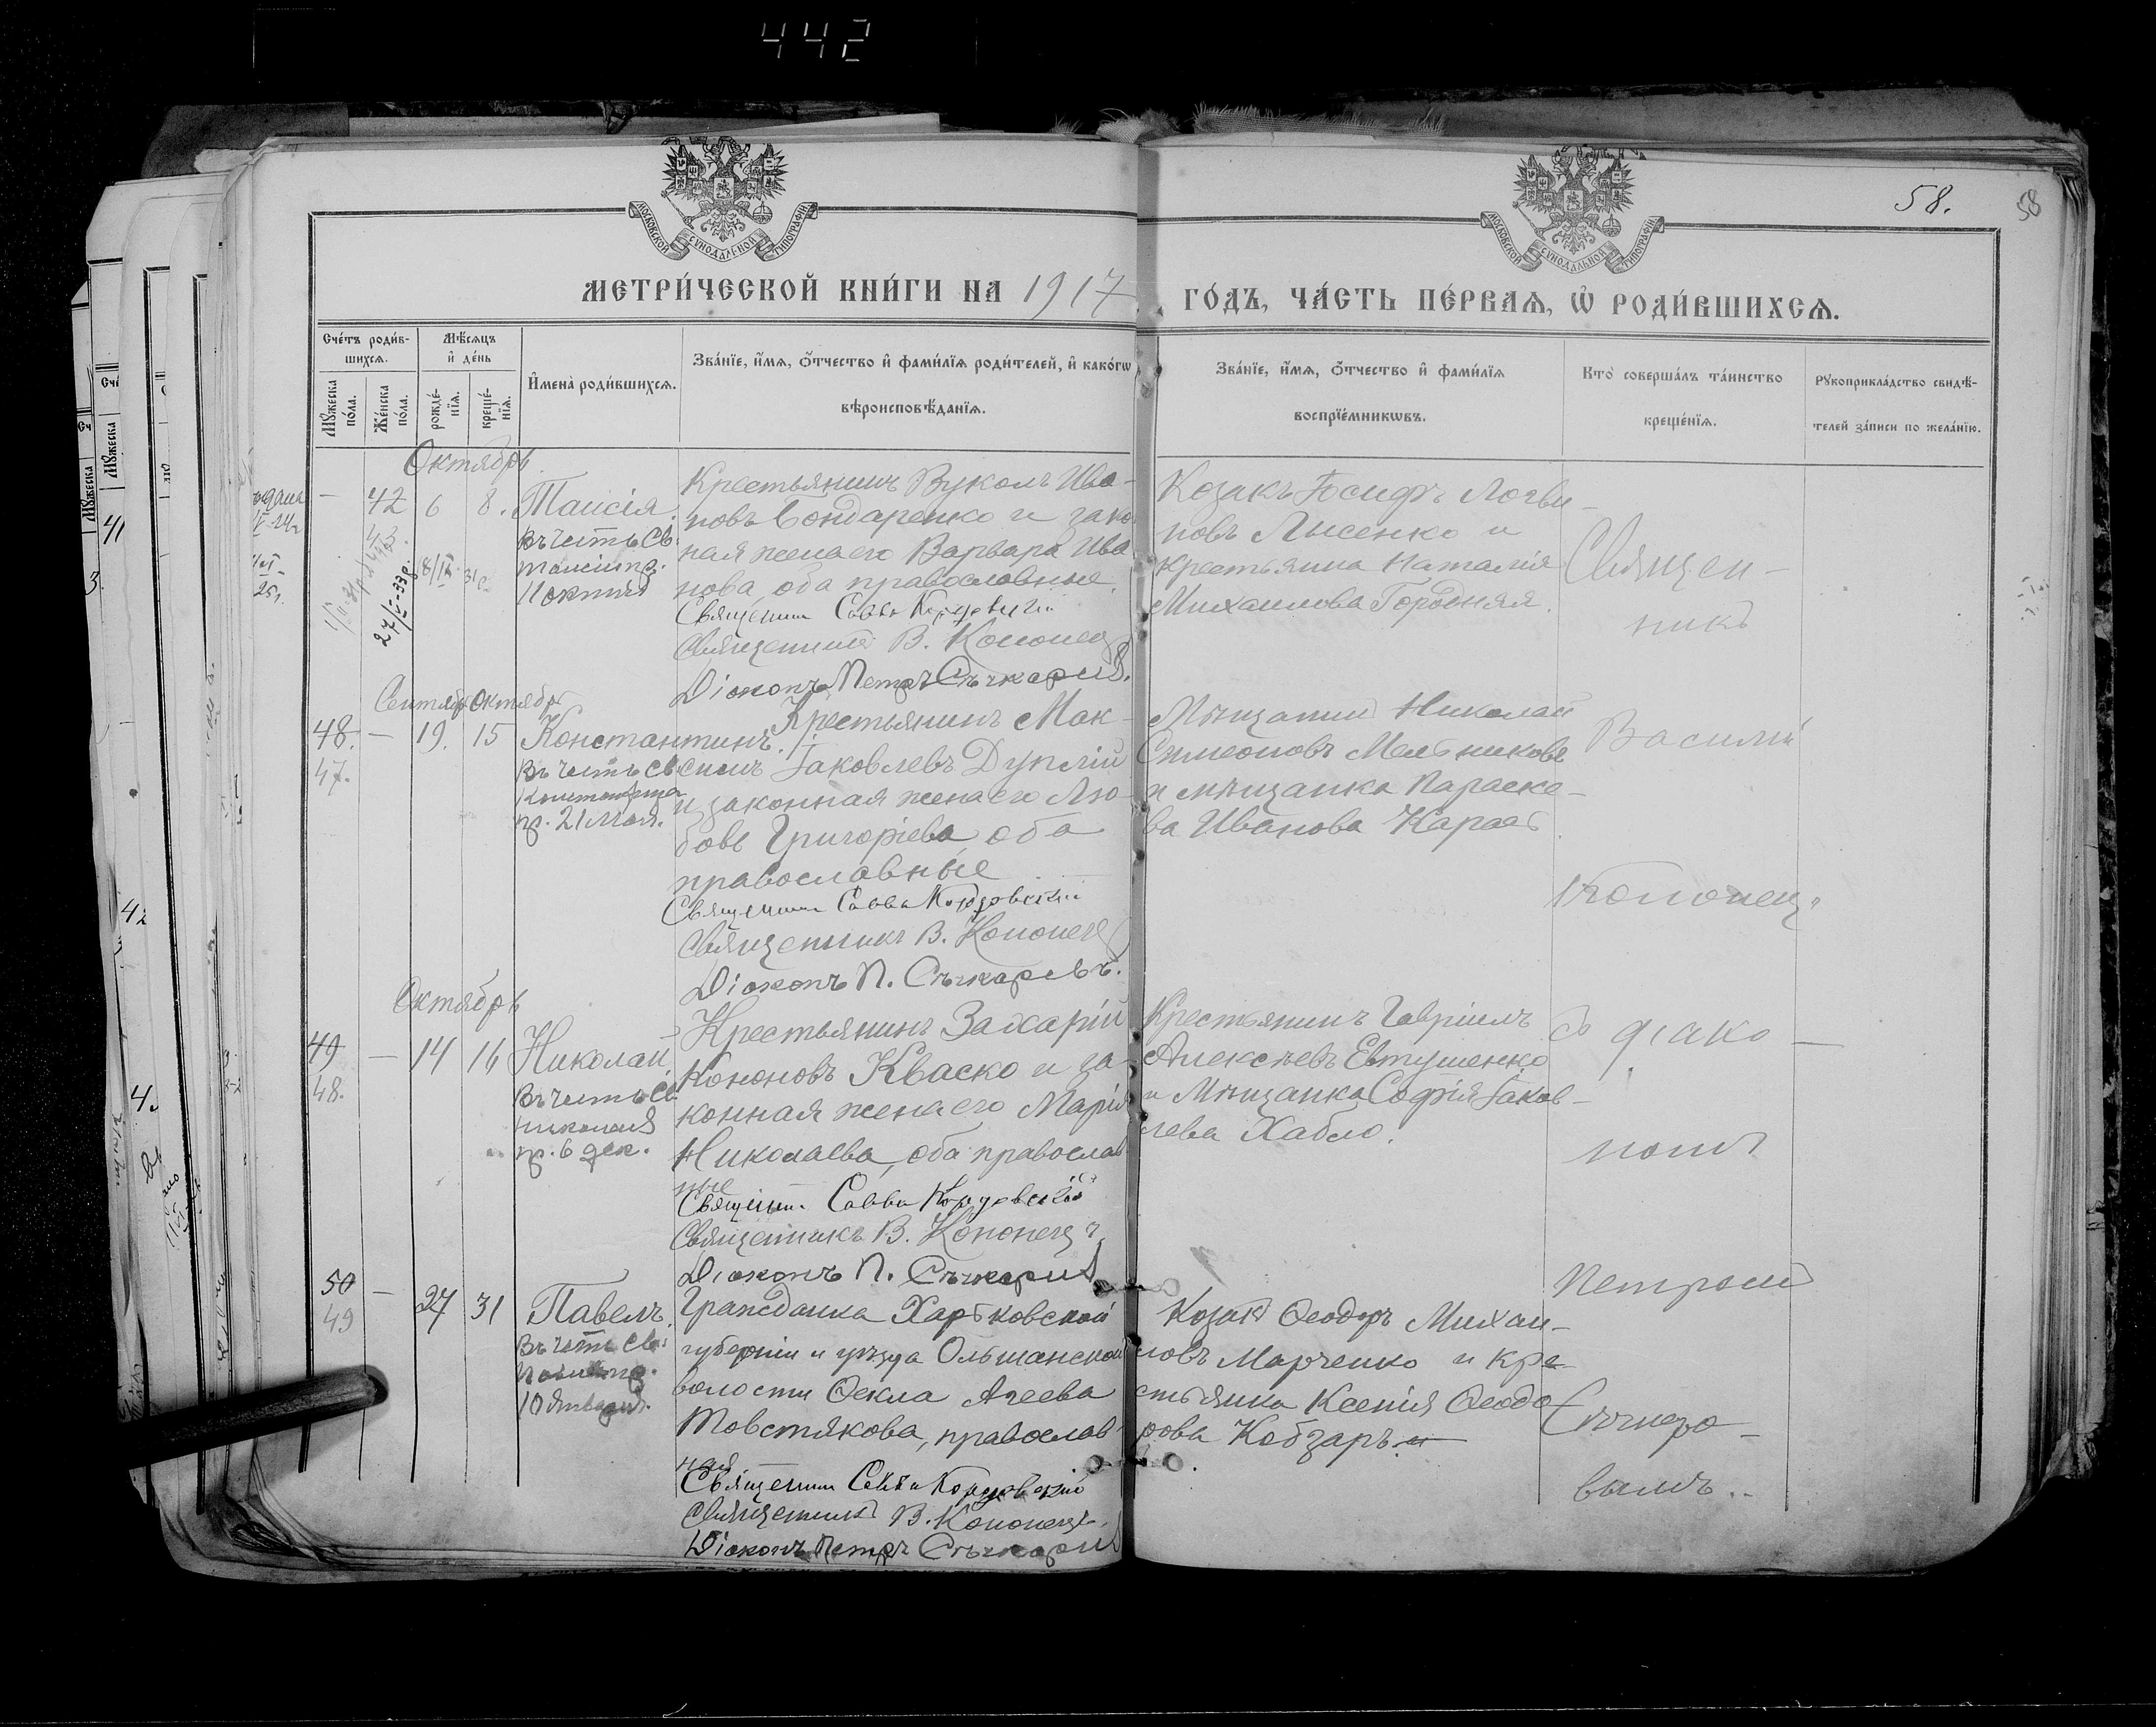 442
58.
58
МОСКОВСКОЙ СУНОДАЛЬНОЙ ТИПОГРАФІИ
МОСКОВСКОЙ СУНОДАЛЬНОЙ ТИПОГРАФІИ
МЕТРИ́ЧЕСКОЙ КНИ́ГИ НА 1917 ГО́ДЪ, ЧА́СТЬ ПЕ́РВАѦ, Ѡ РОДИ́ВШИХСѦ.
Сче́тъ роди́в-
шихсѧ.
Мꙋжеска
по́ла.
Же́нска
по́ла.
Мѣ́сѧцъ
и҆ де́нь
рожде́-
нїѧ.
креще́-
нїѧ.
И҆мена̀ роди́вшихсѧ.
Зва́нїе, и҆́мѧ, ѻ҆́тчество и҆ фами́лїѧ роди́телей, и҆ како́гѡ
вѣроисповѣ́данїѧ.
Зва́нїе, и҆́мѧ, ѻ҆́тчество и҆ фами́лїѧ
воспрїе́мникѡвъ.
Кто̀ соверша́лъ та́инство
креще́нїѧ.
Рꙋкоприкла́дство свидѣ́-
телей за́писи по жела́нїю.
Октябрь
— 42 6 8. Таисія
въ честь св.
Таисіи пр.
27/V-33 р.
Крестьянинъ Вуколъ Ива-
новъ Бондаренко и закон
ная жена его Варвара Ива
нова, оба православные.
Священник Савва
Священникъ В. Кононец
Діаконъ Петръ Сѣчкаревъ.
Козакъ Іосифъ Логви-
новъ Лысенко и
крестьянка Наталія
Михаилова Городняя.
Священ-
никъ
Сентябр Октябрь
48. — 19. 15 Константинъ.
47.
въ честь св.
Константина
пр. 21 мая.
Крестьянинъ Мак-
симъ Іаковлевъ Дуплій
и законная жена его Лю-
бовь Григоріева оба
православные
Священник Савва
Священникъ В. Кононец
Діаконъ П. Сѣчкаревъ.
Мѣщанин Николай
Симеоновъ Мельниковъ
и мѣщанка Параске-
ва Иванова
Василій
Кононец
Октябрь
49 — 14 16 Николай
48.
въ честь св.
Николая
пр. 6 дек.
Крестьянинъ Захарій
Кононовъ Кваско и за-
конная жена его Марія
Николаева, оба православ
ные
Священник Савва
Священникъ В. Кононецъ
Діаконъ П. Сѣчкарев
Крестьянинъ Гавріилъ
Алексѣевъ Евтушенко
и Мѣщанка Софія Іаков-
лева Хабло.
съ діако-
номъ
Петром
50 — 27 31 Павелъ.
49
въ честь св.
Павла пр.
10 января.
Гражданка Харьковской
губерніи и уѣзда Ольшанской
волости Ѳекла Агеева
Товстякова, православ-
ная
Священник Савва
Священникъ В. Кононецъ
Діаконъ Петръ Сѣчкарев
Козакъ Ѳеодоръ Михаи-
ловъ Марченко и кре-
стьянка Ксенія Ѳеодо
рова Кобзаръ.
Сѣчкаре-
вымъ..